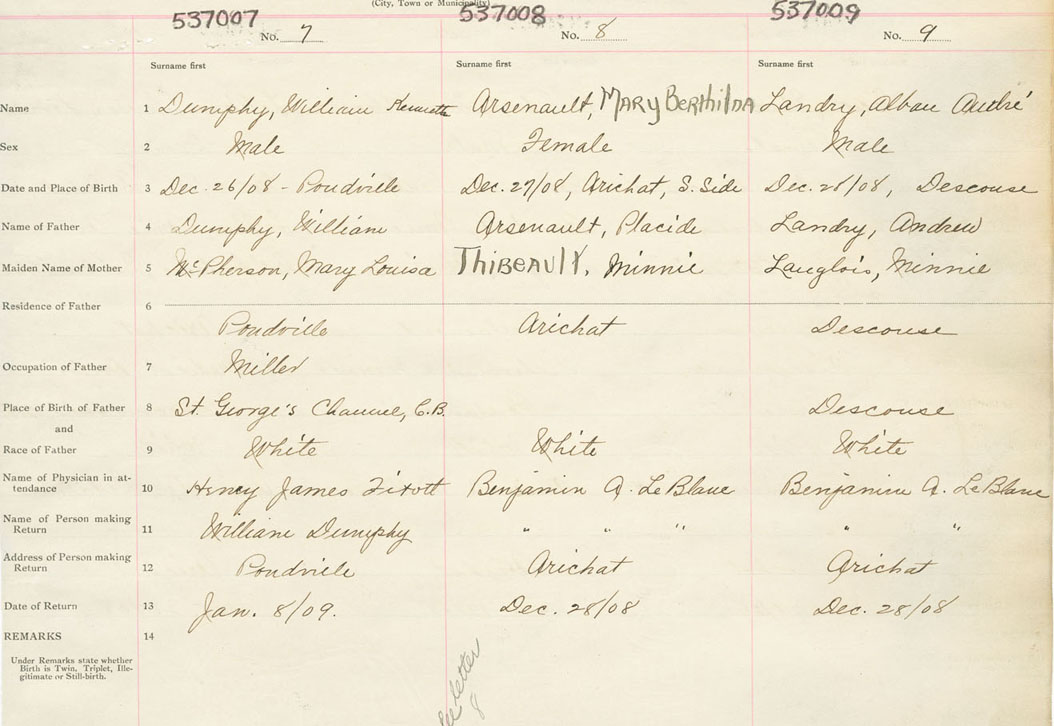 (City, Town or Municipality)
537007 537008 537009
No. 7 No. 8 No. 9
Surname first Surname first Surname first
Name 1 Dumphy, William Kenneth Arsenault, MARY BERTHILDA Landry, Alban André
Sex 2 Male Female Male
Date and Place of Birth 3 Dec. 26/08 - Poudville Dec. 27/08, Arichat, S. Side Dec. 28/08, Descouse
Name of Father 4 Dumphy, William Arsenault, Placide Landry, Andrew
Maiden Name of Mother 5 McPherson, Mary Louisa THIBEAULT, Minnie Langlois, Minnie
Residence of Father 6
Poudville Arichat Descouse
Occupation of Father 7 Miller
Place of Birth of Father 8 St. George's Channel, C.B. Descouse
and
Race of Father 9 White White White
Name of Physician in at-
tendance 10 Henry James Fixott Benjamin A. LeBlanc Benjamin A. LeBlanc
Name of Person making
Return 11 William Dumphy " " " " "
Address of Person making
Return 12 Poudville Arichat Arichat
Date of Return 13 Jan. 8/09. Dec. 28/08 Dec. 28/08
REMARKS 14
Under Remarks state whether
Birth is Twin, Triplet, Ille-
gitimate or Still-birth.
letter
8